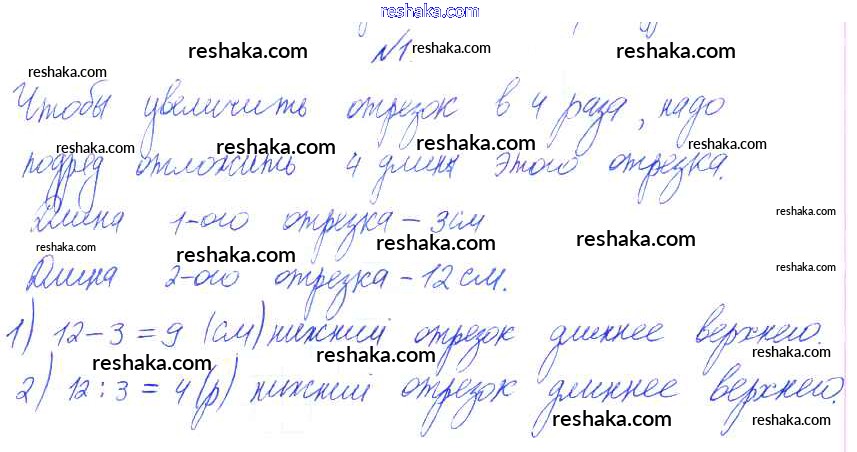 reshaka.com
reshaka.com №1. reshaka.com
reshaka.com
Чтобы увеличить отрезок в 4 раза, надо
reshaka.com reshaka.com reshaka.com reshaka.com
подряд отложить 4 длины этого отрезка.
Длина 1-ого отрезка – 3см
reshaka.com
reshaka.com reshaka.com reshaka.com reshaka.com
Длина 2-ого отрезка – 12 см.
reshaka.com
1) 12 – 3 = 9 (см) нижний отрезок длиннее верхнего.
reshaka.com reshaka.com reshaka.com reshaka.com
2) 12 : 3 = 4 (р) нижний отрезок длиннее верхнего.
reshaka.com reshaka.com